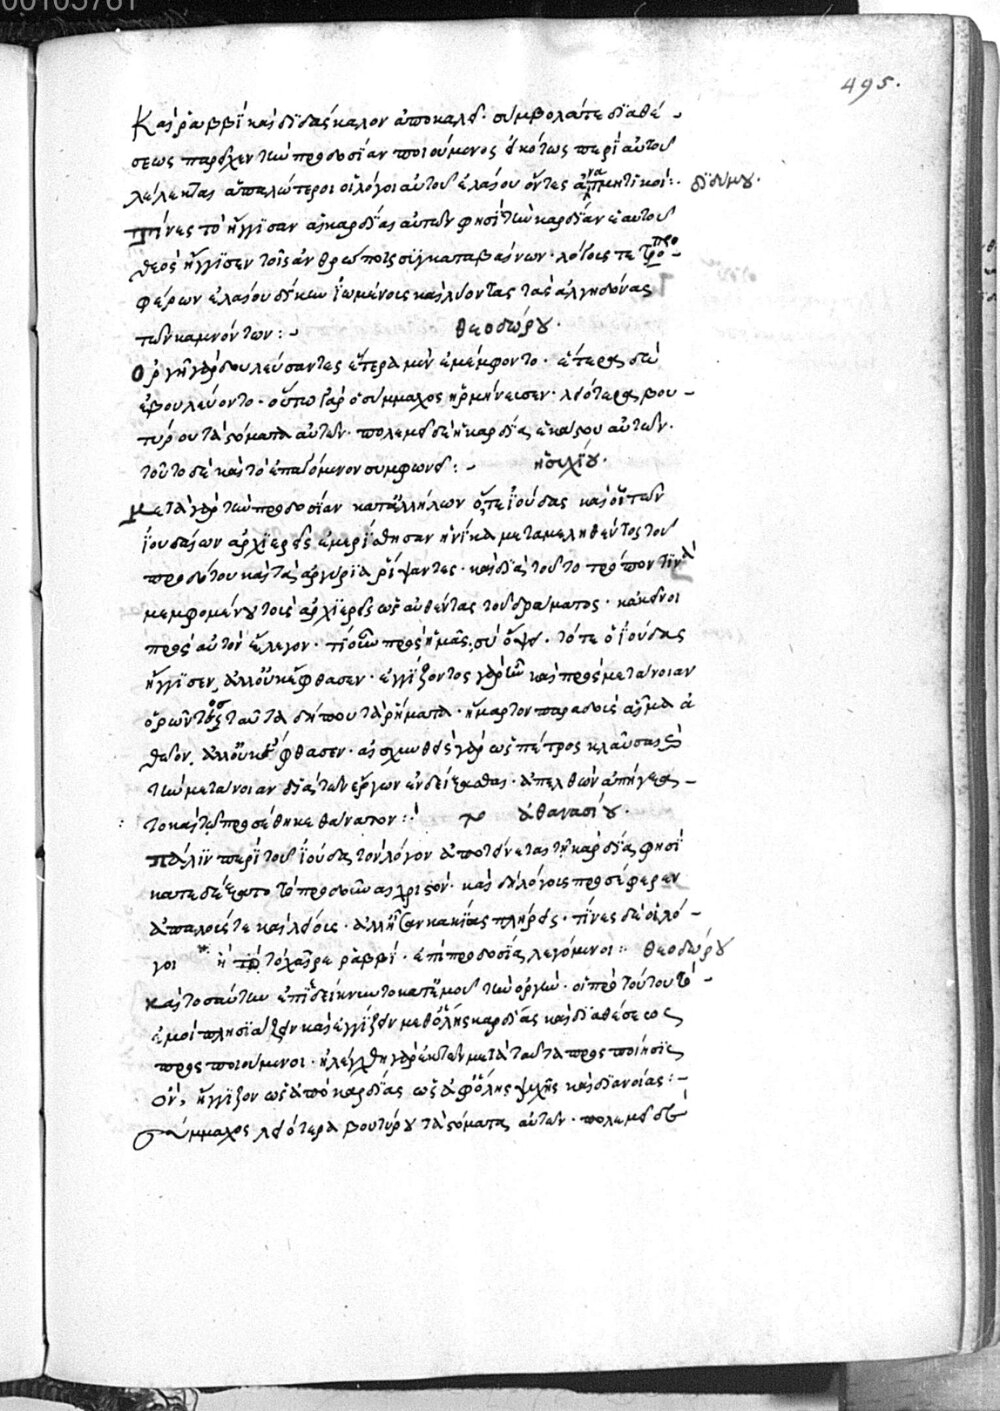 00105761
495.
Καὶ ῥαββὶ καὶ διδάσκαλον ἀποκαλεῖ· σύμβολά τε διαθέ-
σεως παρεῖχεν τὴν προδοσίαν ποιούμενος εἰκότως περὶ αὐτοῦ
λέλεκται ἁπαλώτεροι οἱ λόγοι αὐτοῦ ἐλαίου ὄντες ἀπαντητικοί: διδύμου.
τινες τὸ ἤγγισαν αἱ καρδίαι αὐτῶν φησὶ τὴν καρδίαν ἑαυτοῦ
θεὸς ἤγγισεν τοῖς ἀνθρώποις συγκαταβαίνων· λόγοις τε προ-
φέρων ἐλαίου δίκην ἰωμένοις καὶ λύοντας τὰς ἀλγηδόνας
τῶν καμνόντων:- θεοδώρου·
Ὀργῆ γὰρ δουλεύσαντες ἕτερα μὲν ἐμέμφοντο· ἕτερα δὲ
ἐβουλεύοντο· οὕτω γὰρ ὁ σύμμαχος ἡρμήνευσεν· λειότερα βου-
τύρου τὰ στόματα αὐτῶν· πολεμεῖ δὲ ἡ καρδία ἑκάστου αὐτῶν·
τοῦτο δὲ καὶ τὸ ἐπαγόμενον συμφωνεῖ:- ἡσυχίου·
Μετὰ γὰρ τὴν προδοσίαν κατ' ἀλλήλων ὅ τε ἰούδας καὶ οἱ τῶν
ἰουδαίων ἀρχιερεῖς ἐμερίσθησαν ἡνίκα μεταμεληθέντος τοῦ
προδότου καὶ τὰ ἀργύρια ῥίψαντες· καὶ διὰ τοῦτο τρόπον τινὰ
μεμφομένου τοῖς ἀρχιερεῖς ὡς αὐθέντας τοῦ δράματος· κἀκεῖνοι
πρὸς αὐτὸν ἔλεγον· τί οὖν πρὸς ἡμᾶς, σὺ ὄψει· τότε ὁ ἰούδας
ἤγγισεν, ἀλλ' οὐκ ἔφθασεν· ἐγγίζοντος γὰρ ἦν καὶ πρὸς μετάνοιαν
ὁρῶντος ταῦτα δήπου τὰ ῥήματα· ἥμαρτον παραδοὺς αἷμα ἀ
θῶον, ἀλλ' οὐκ ἔφθασεν· αἰσχυνθεὶς γὰρ ὡς πέτρος κλαῦσαι καὶ
τὴν μετάνοιαν διὰ τῶν ἔργων ἐνδείξασθαι· ἀπελθὼν ἀπήγξα-
το καὶ τῷ προσέθηκε θάνατον: ἀθανασίου·
Πάλιν περὶ τοῦ ἰούδα τὸν λόγον ἀποτείνεται τῇ καρδίᾳ φησὶ
κατεδέξατο τὸ προδοῦναι χριστόν· καὶ δὴ λόγοις προσέφερεν
ἁπαλοῖς τε καὶ λείοις· ἀλλ' ἦσαν κακίας πλήρεις· τίνες δὲ οἱ λό-
γοι ἢ τὸ χαῖρε ῥαββί· ἐπὶ προδοσίᾳ λεγόμενοι: θεοδώρου
Καὶ τοσαύτην ἐπιδείκνυντο κατ' ἐμοῦ τὴν ὀργήν· οἱ πρὸ τούτου τὸ-
ἐμοὶ πλησιάζειν καὶ ἐγγίζειν μεθ' ὅλης καρδίας καὶ διαθέσεως
προσποιούμενοι· ἠλέγχθη γὰρ ἐκ τῶν μετὰ ταῦτα προσποίησις
οὖν, ἤγγιζον ὡς ἀπὸ καρδίας ὡς ἀφ' ὅλης ψυχῆς καὶ διανοίας:-
Σύμμαχος λειότερα βουτύρου τὰ στόματα αὐτῶν· πολεμεῖ δὲ